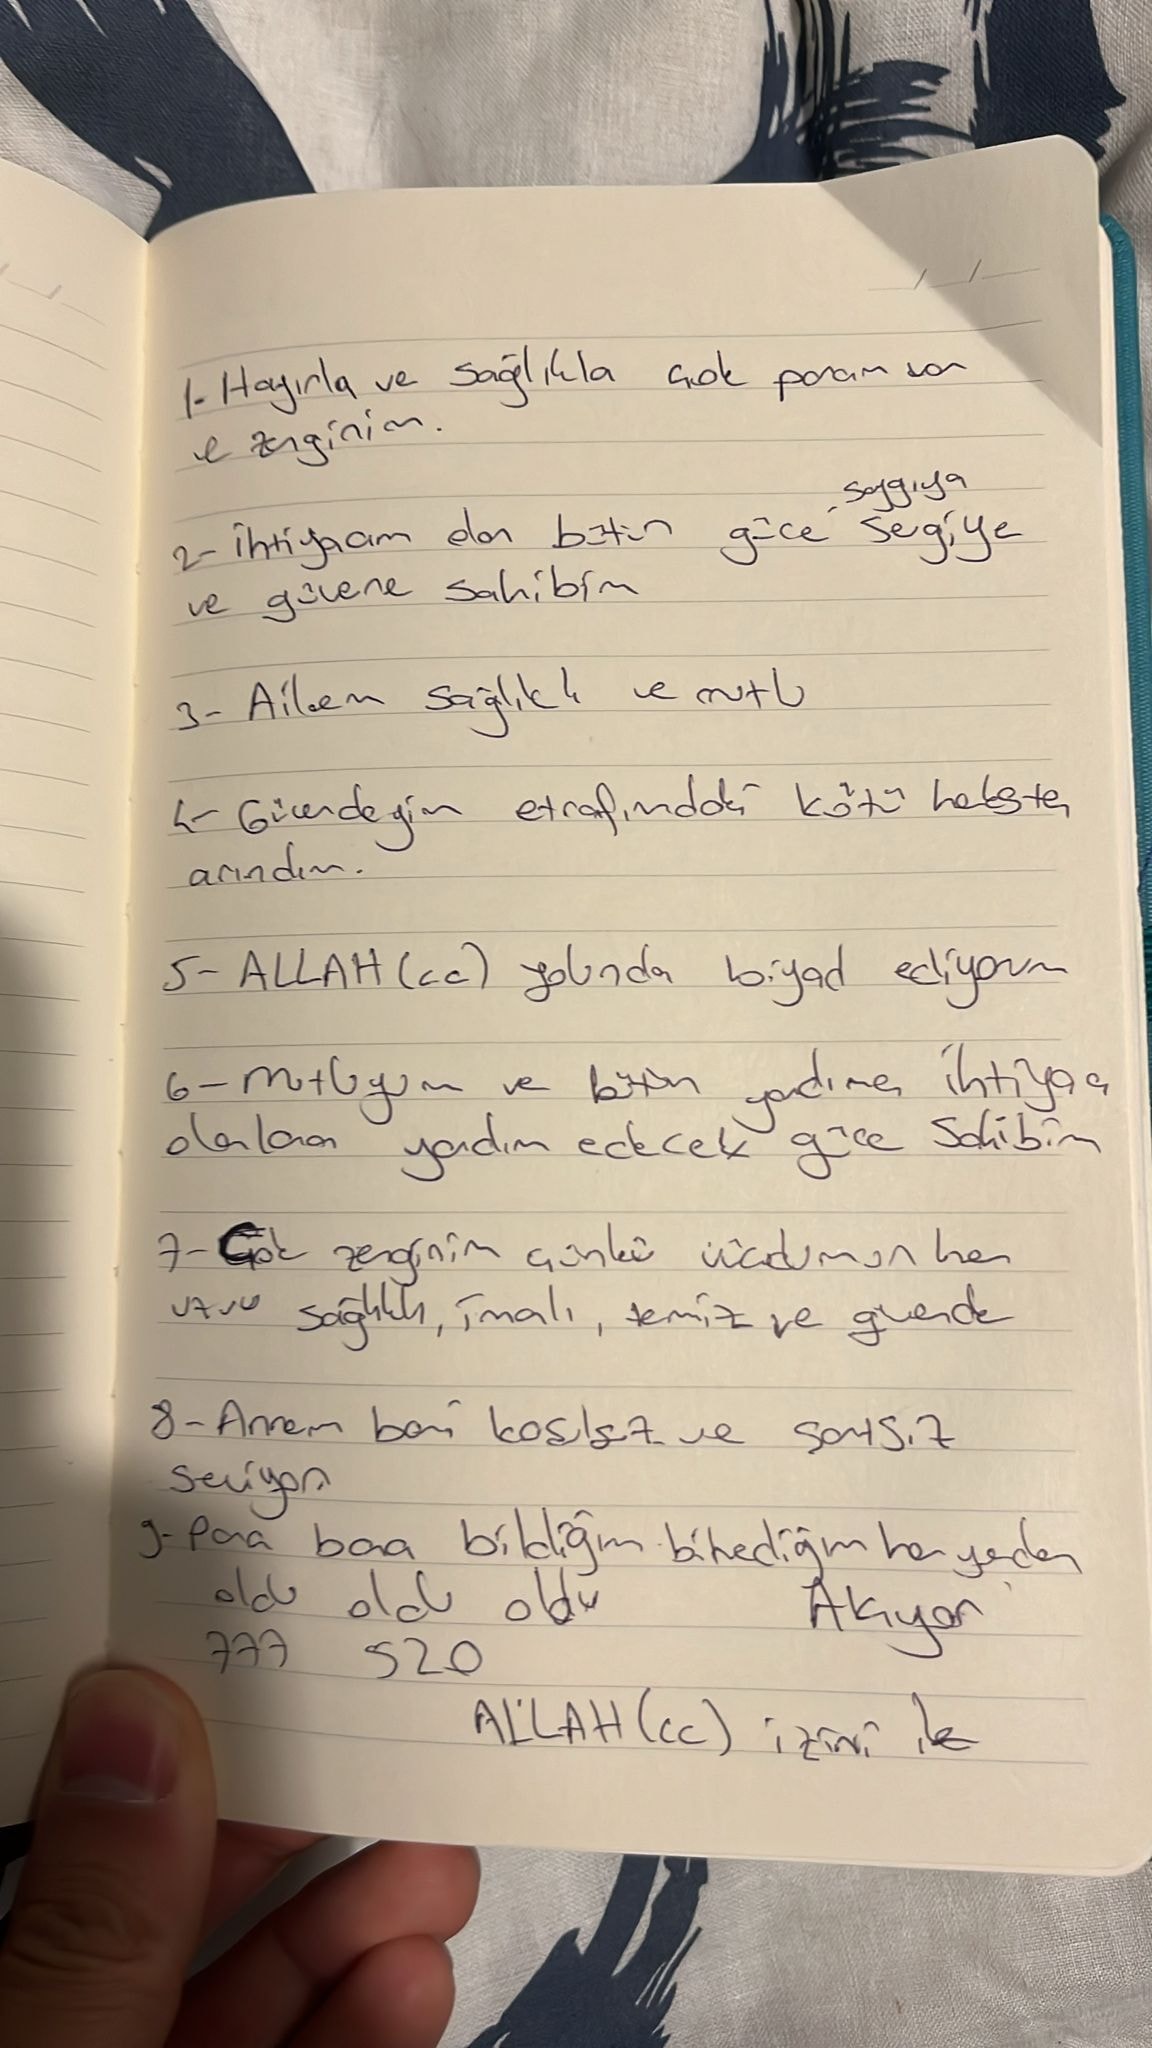 1- Hayırla ve sağlıkla çok param var
ve zenginim.
saygıya
2- ihtiyacım olan bütün güce sevgiye
ve güvene sahibim
3- Ailem sağlıklı ve mutlu
4- Güvendeyim etrafımdaki kötü herkesten
arındım.
5- ALLAH (cc) yolunda biyad ediyorum
6- mutluyum ve bütün yardıma ihtiyacı
olanlara yardım edecek güce sahibim
7- Çok zenginim çünkü vücudumun her
uzvu sağlıklı, imalı, temiz ve güvende
8- Annem beni koşulsuz ve şartsız
seviyor
9- Para bana bildiğim bilmediğim her yerden
oldu oldu oldu Akıyor
777 520
ALLAH (cc) izini ile